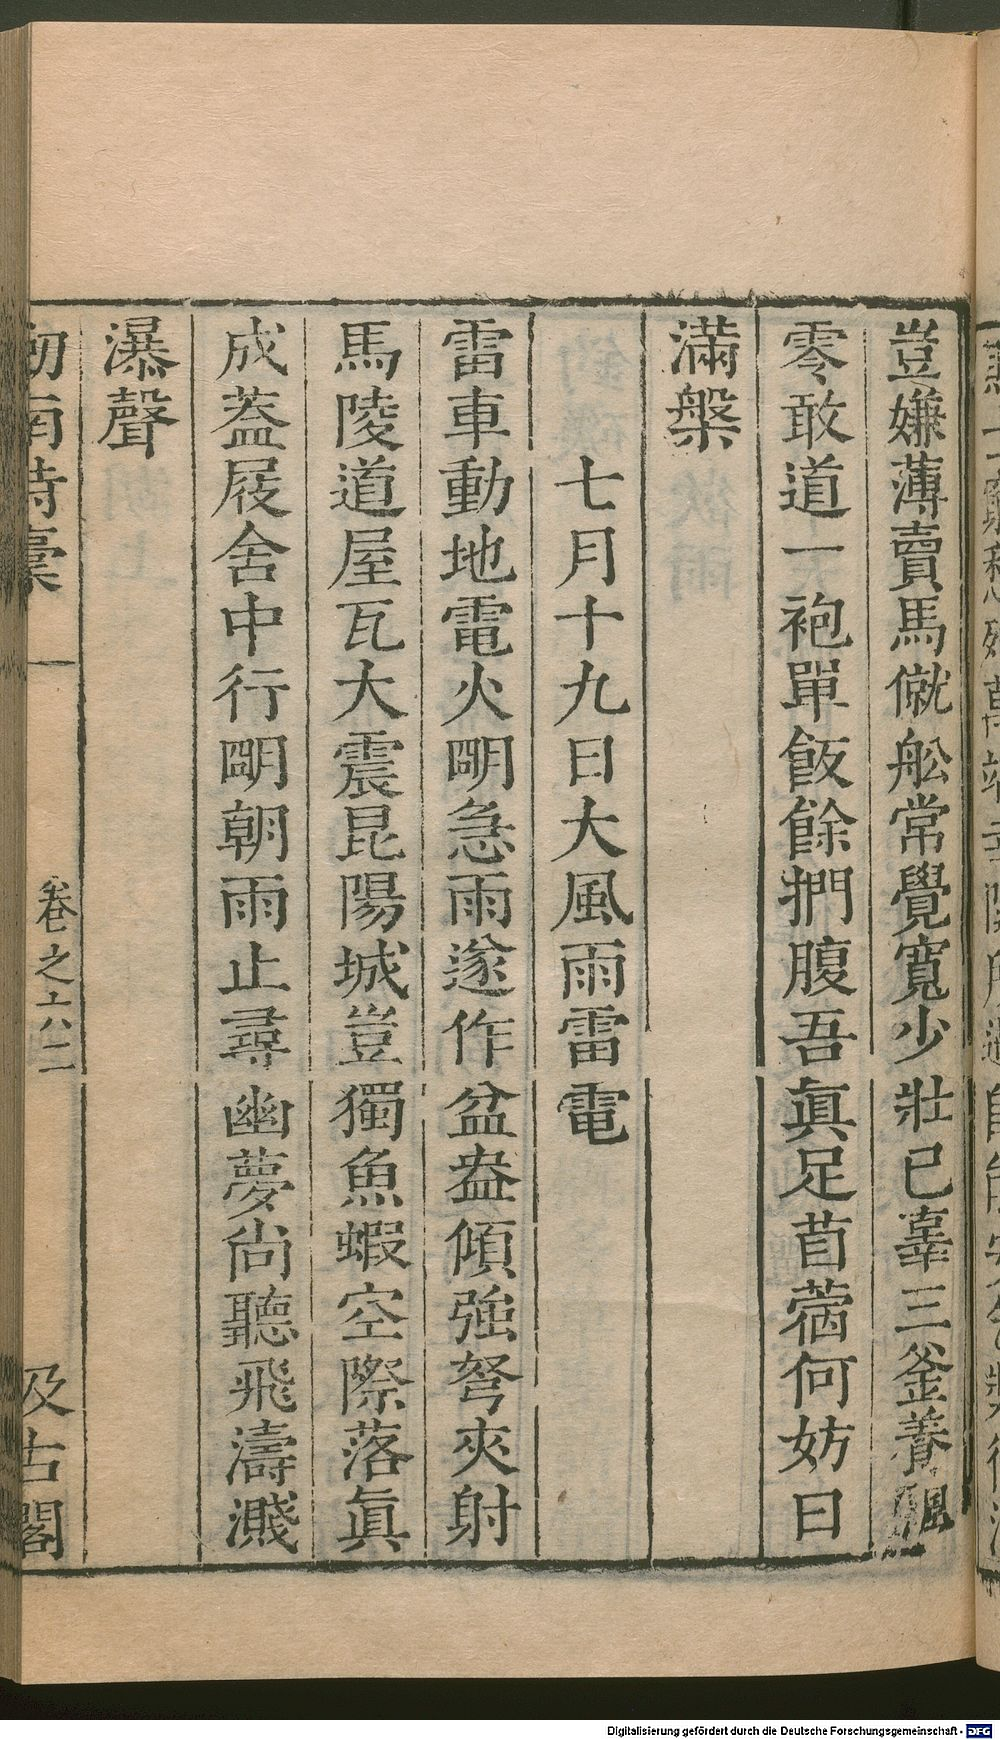 豈嫌薄賣馬僦舩常覺寬少壯已辜三釜養飄
零敢道一袍單飯餘捫腹吾眞足苜蓿何妨日
滿槃
七月十九日大風雨雷電
雷車動地電火明急雨遂作盆盎傾強弩夾射
馬陵道屋瓦大震昆陽城豈獨魚蝦空際落眞
成蓋屐舍中行明朝雨止尋幽夢尙聽飛濤濺
瀑聲
劒南詩稾 一 卷之六八 二 汲古閣
Digitalisierung gefördert durch die Deutsche Forschungsgemeinschaft - DFG